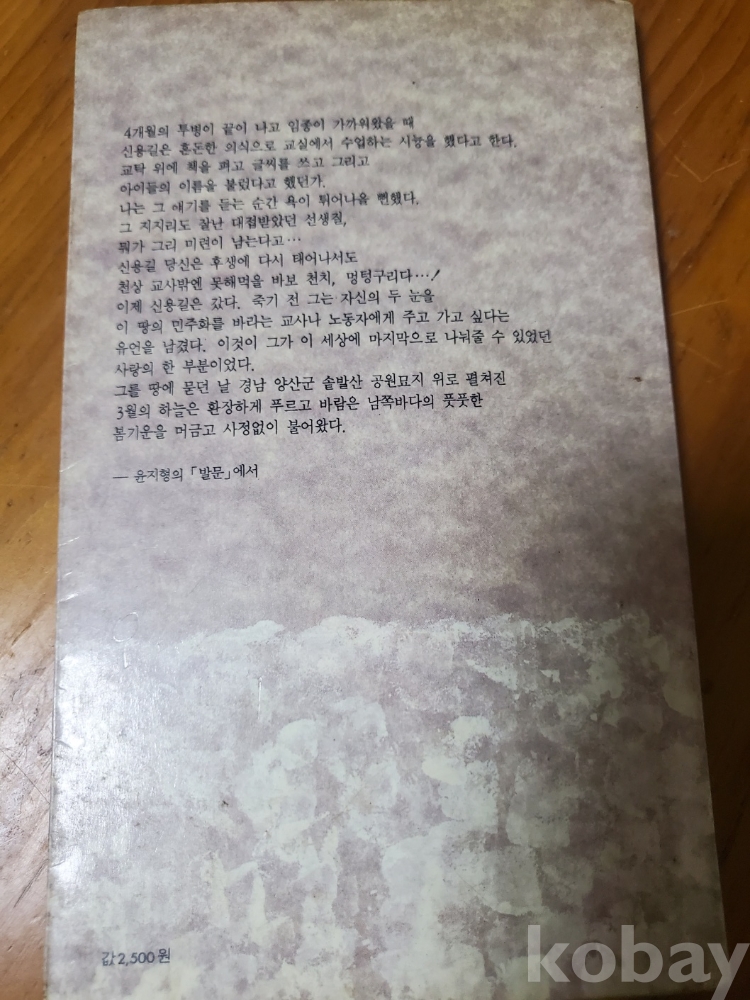 4개월의 투병이 끝이 나고 임종이 가까워왔을 때
신용길은 혼돈한 의식으로 교실에서 수업하는 시늉을 했다고 한다.
교탁 위에 책을 펴고 글씨를 쓰고 그리고
아이들의 이름을 불렀다고 했던가.
나는 그 얘기를 듣는 순간 욕이 튀어나올 뻔했다.
그 지지리도 잘난 대접받았던 선생질,
뭐가 그리 미련이 남는다고…
신용길 당신은 후생에 다시 태어나서도
천상 교사밖엔 못해먹을 바보 천치, 멍텅구리다…!
이제 신용길은 갔다. 죽기 전 그는 자신의 두 눈을
이 땅의 민주화를 바라는 교사나 노동자에게 주고 가고 싶다는
유언을 남겼다. 이것이 그가 이 세상에 마지막으로 나눠줄 수 있었던
사랑의 한 부분이었다.
그를 땅에 묻던 날 경남 양산군 솥발산 공원묘지 위로 펼쳐진
3월의 하늘은 환장하게 푸르고 바람은 남쪽바다의 풋풋한
봄기운을 머금고 사정없이 불어왔다.
— 윤지형의 「발문」에서
값 2,500원
kobay